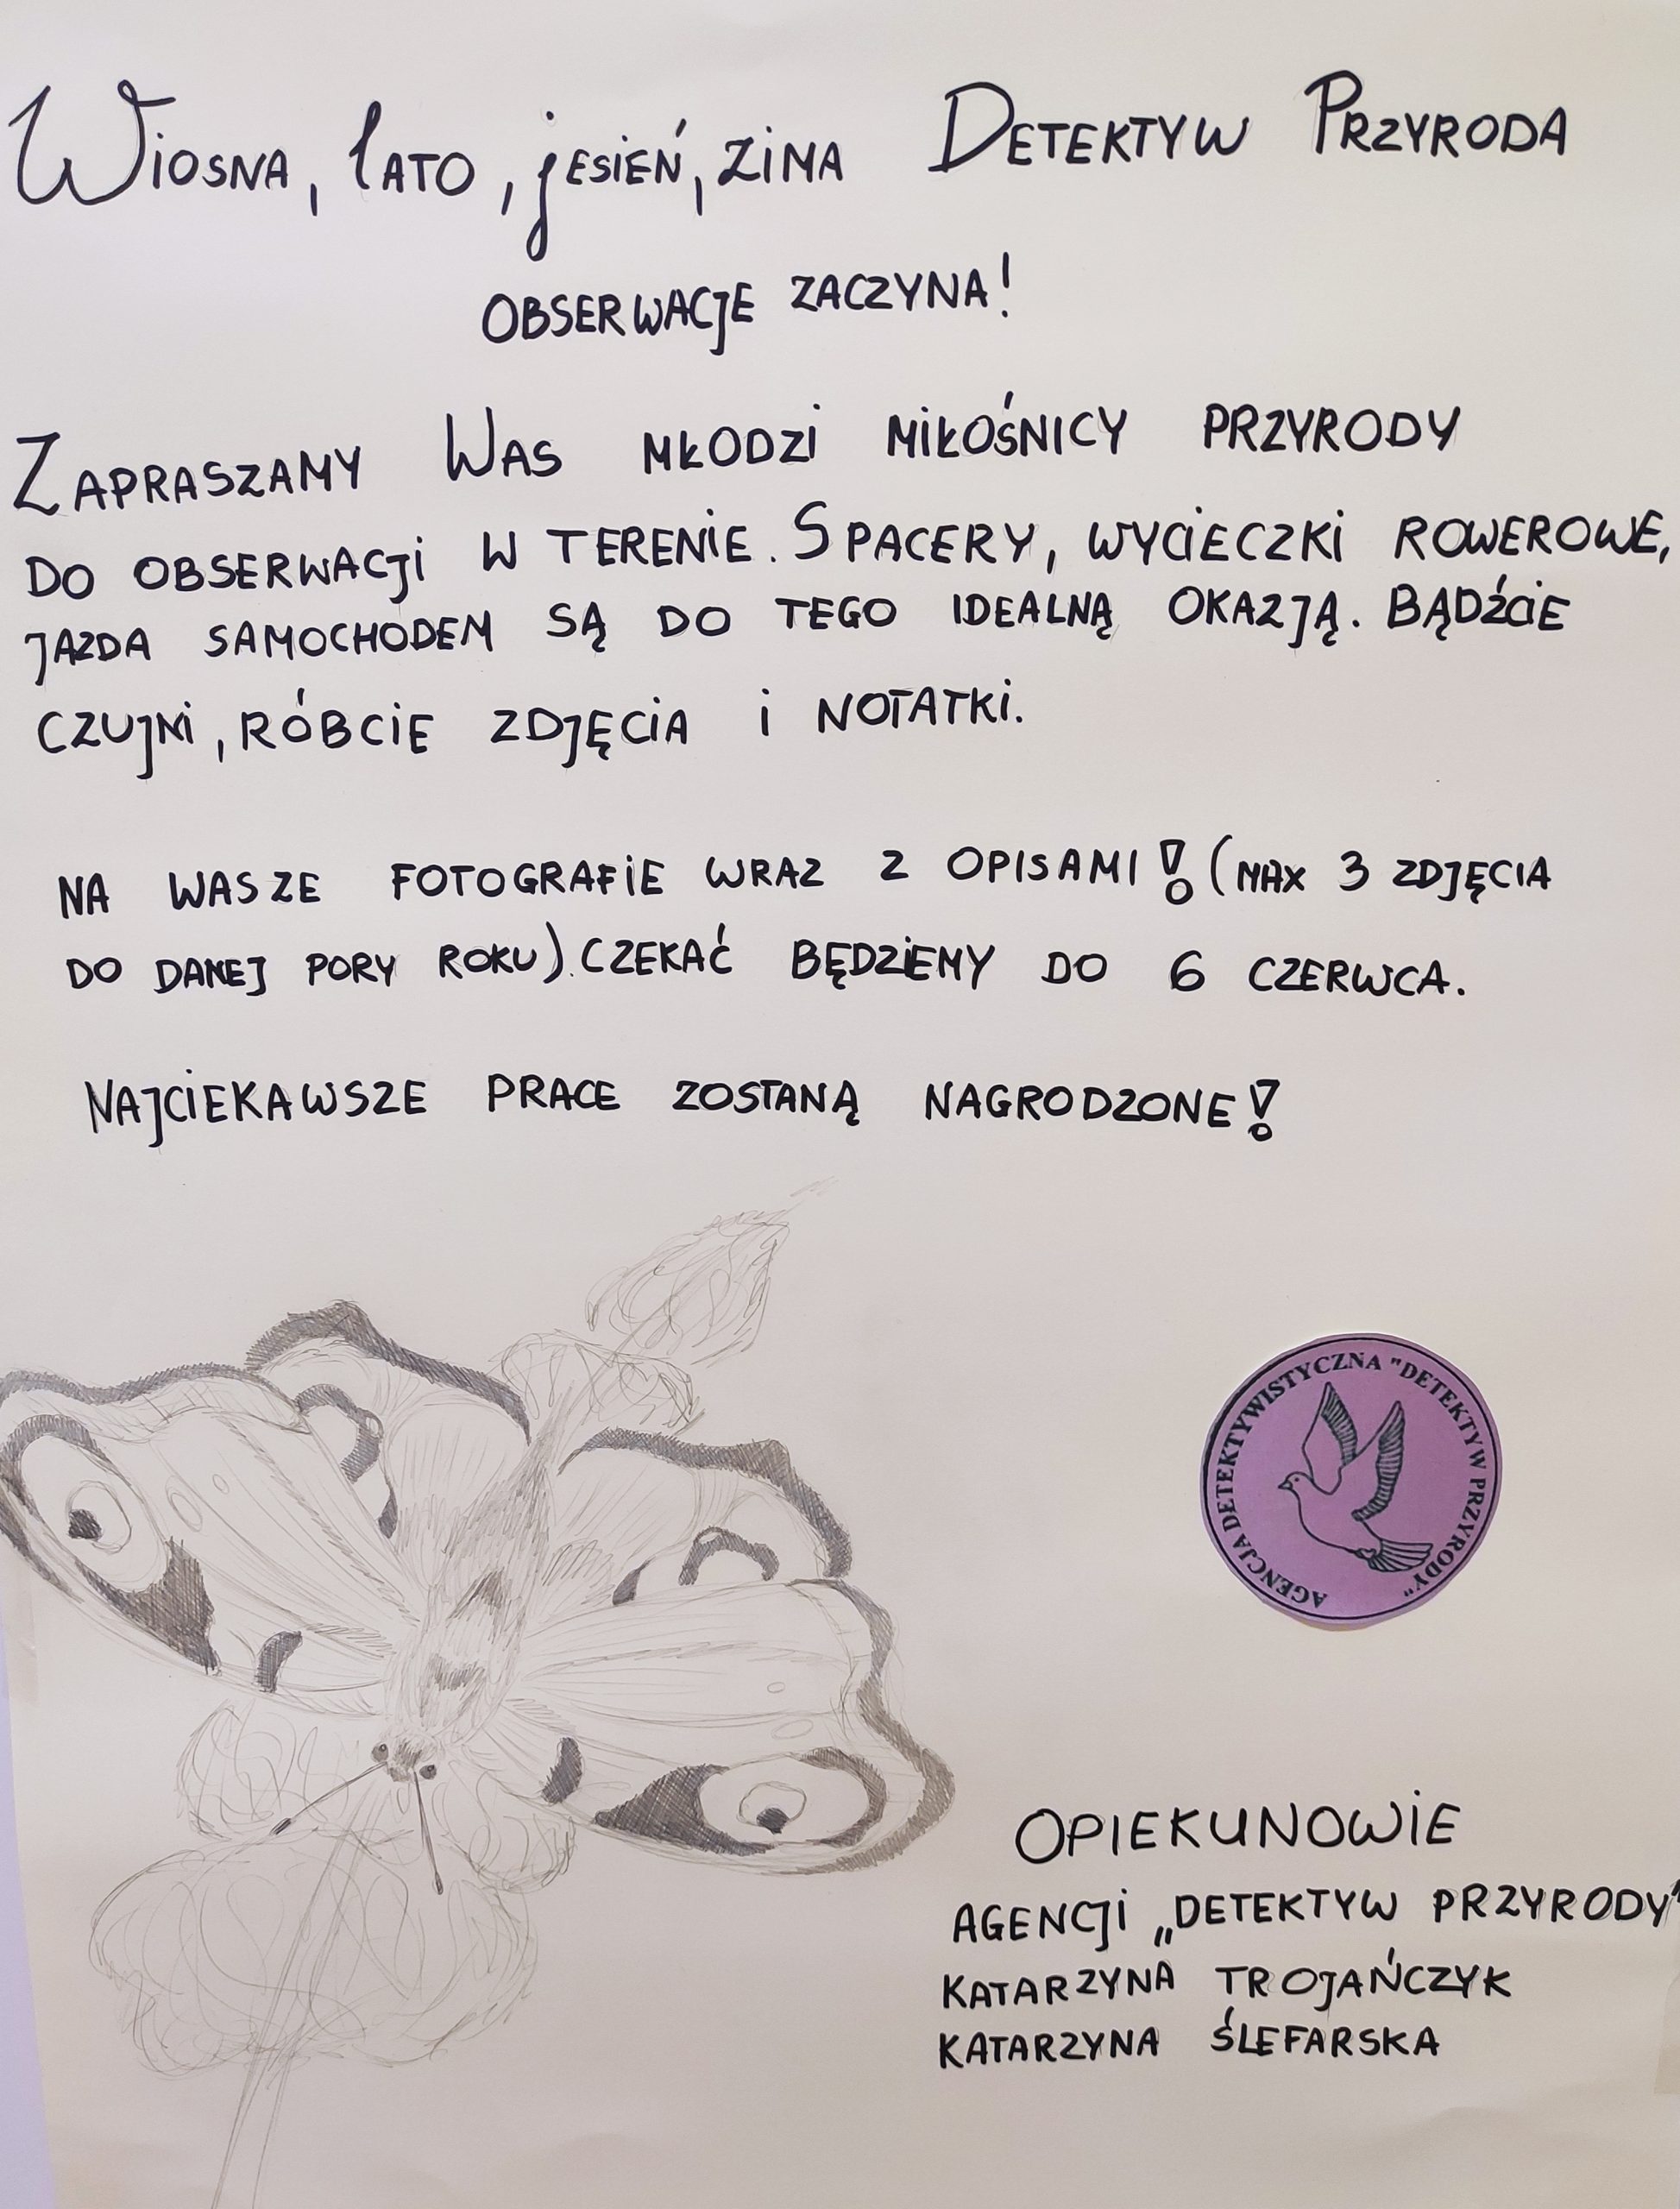 Wiosna, lato, jesień, zima Detektyw Przyroda
OBSERWACJE ZACZYNA!
ZAPRASZAMY WAS MŁODZI MIŁOŚNICY PRZYRODY
DO OBSERWACJI W TERENIE. SPACERY, WYCIECZKI ROWEROWE,
JAZDA SAMOCHODEM SĄ DO TEGO IDEALNĄ OKAZJĄ. BĄDŹCIE
CZUJNI, RÓBCIE ZDJĘCIA i NOTATKI.
NA WASZE FOTOGRAFIE WRAZ Z OPISAMI! (MAX 3 ZDJĘCIA
DO DANEJ PORY ROKU). CZEKAĆ BĘDZIEMY DO 6 CZERWCA.
NAJCIEKAWSZE PRACE ZOSTANĄ NAGRODZONE!
AGENCJA DETEKTYWISTYCZNA "DETEKTYW PRZYRODY"
OPIEKUNOWIE
AGENCJI „DETEKTYW PRZYRODY"
KATARZYNA TROJAŃCZYK
KATARZYNA ŚLEFARSKA